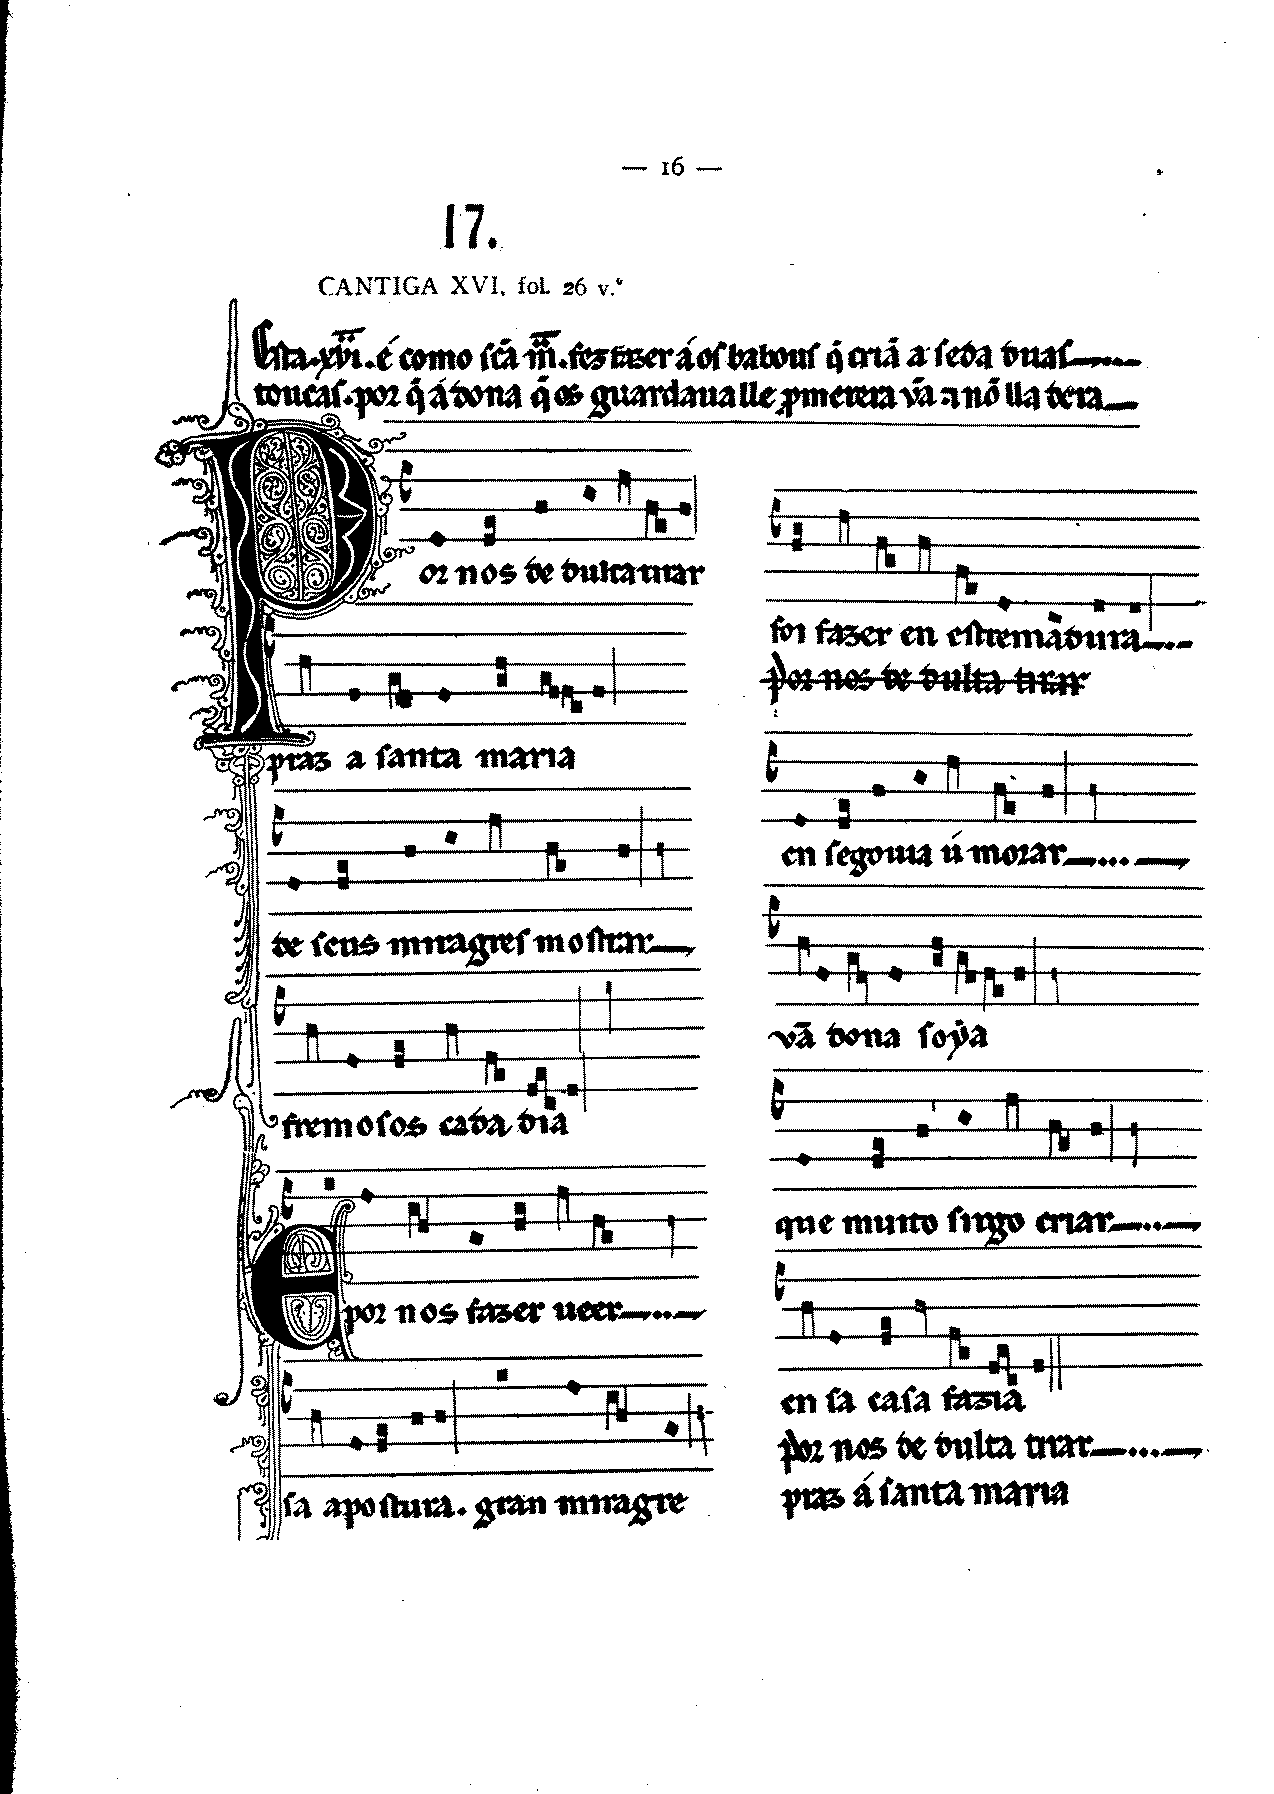 — 16 —
17.
CANTIGA XVI, fol. 26 v.º
Esta .xvi. é como sc̃a m̃. fez fazer á os babous q̃ criã a seda duas
toucas. por q̃ á dona q̃ os guardaua lle prometera ũa ⁊ nõ lla dera
Por nos de dulta tirar
praz a santa maria
de seus miragres mostrar
fremosos cada dia
E por nos fazer ueer
sa apostura. gran miragre
foi fazer en estremadura
por nos de dulta tirar
en segouia ú morar
ũa dona soýa
que muito sirgo criar
en sa casa fazia
por nos de dulta tirar
praz á santa maria